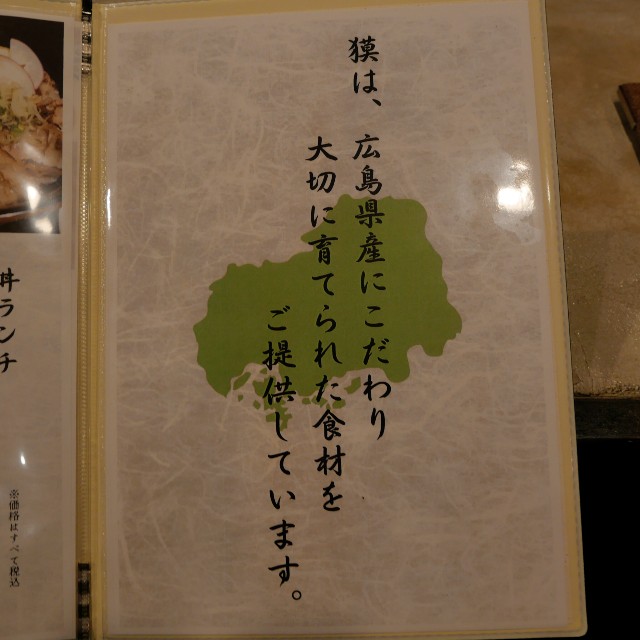 獏は、広島県産にこだわり
大切に育てられた食材を
ご提供しています。
丼ランチ
※価格はすべて税込